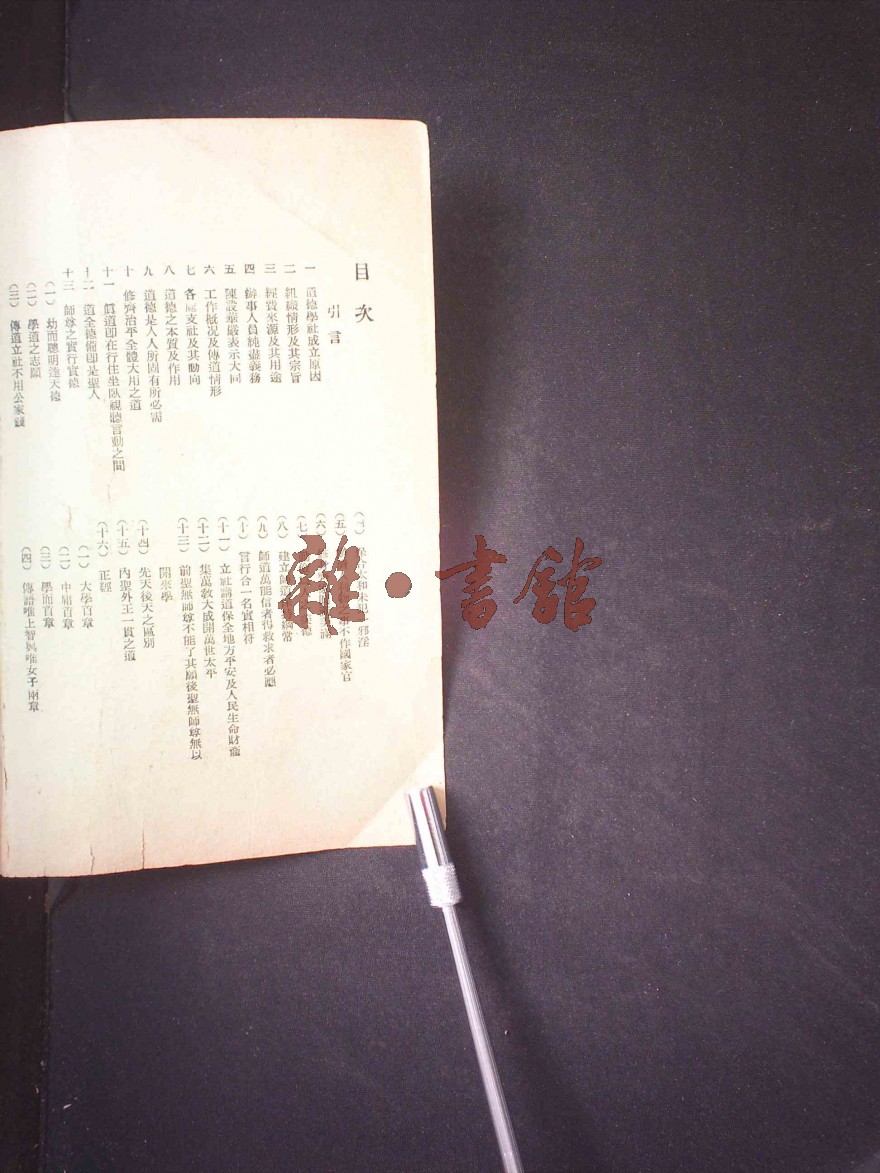 目次
引言
一 道德學社成立原因
二 組織情形及其宗旨
三 經費來源及其用途
四 辦事人員純盡義務
五 陳設華嚴表示大同
六 工作概况及傳道情形
七 各處支社及其動向
八 道德之本質及作用
九 道德是人人所固有所必需
十 修齊治平全體大用之道
十一 眞道即在行住坐臥視聽言動之間
十二 道全德備即是聖人
十三 師尊之實行實德
(一) 幼而聰明達天德
(二) 學道之志願
(三) 傳道立社不用公家錢
(四) 邪淫
(五) 不作國家官
(六)
(七) 德
(八) 建立 綱常
(九) 師道萬能信者得救求者必應
(十) 言行合一名實相符
(十一) 立社講道保全地方平安及人民生命財產
(十二) 集萬教大成開萬世太平
(十三) 前聖無師尊不能了其願後聖無師尊無以
開來學
(十四) 先天後天之區別
(十五) 內聖外王一貫之道
(十六) 正經
(一) 大學首章
(二) 中庸首章
(三) 學而首章
(四) 傳語唯上智與唯女子兩章
雜·書館